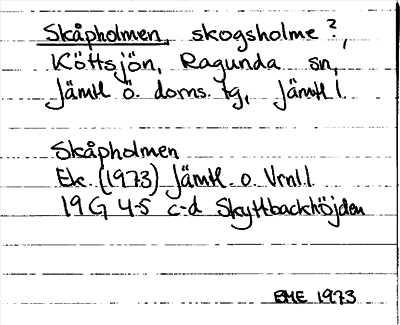 Skåpholmen, skogsholme?,
Köttsjön, Ragunda sn,
Jämtl ö. doms. tg, Jämtl l.
Skåpholmen
Ek. (1973) Jämtl. o Vrnl l
19 G 4-5 c-d Skyttbackhöjden
BME 1973